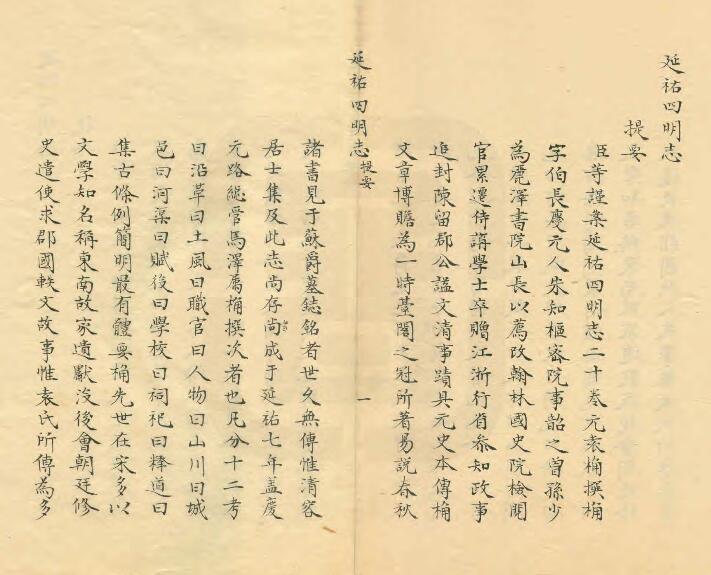 延祐四明志
提要
臣等謹案延祐四明志二十卷元袁桷撰桷
字伯長慶元人宋知樞密院事韶之曾孫少
為麗澤書院山長以薦改翰林國史院檢閱
官累遷侍講學士卒贈江浙行省參知政事
追封陳留郡公謚文清事蹟具元史本傳桷
文章博贍為一時臺閣之冠所著易說春秋
延祐四明志 提要
一
諸書見于蘇爵墓誌銘者世久無傳惟清容
居士集及此志尚存尚成于延祐七年蓋慶
元路總管馬澤屬桷撰次者也凡分十二考
曰沿革曰土風曰職官曰人物曰山川曰城
邑曰河渠曰賦役曰學校曰祠祀曰釋道曰
集古條例簡明最有體要桷先世在宋多以
文學知名稱東南故家遺獻沒後會朝廷修
史遣使求郡國軼文故事惟袁氏所傳為多